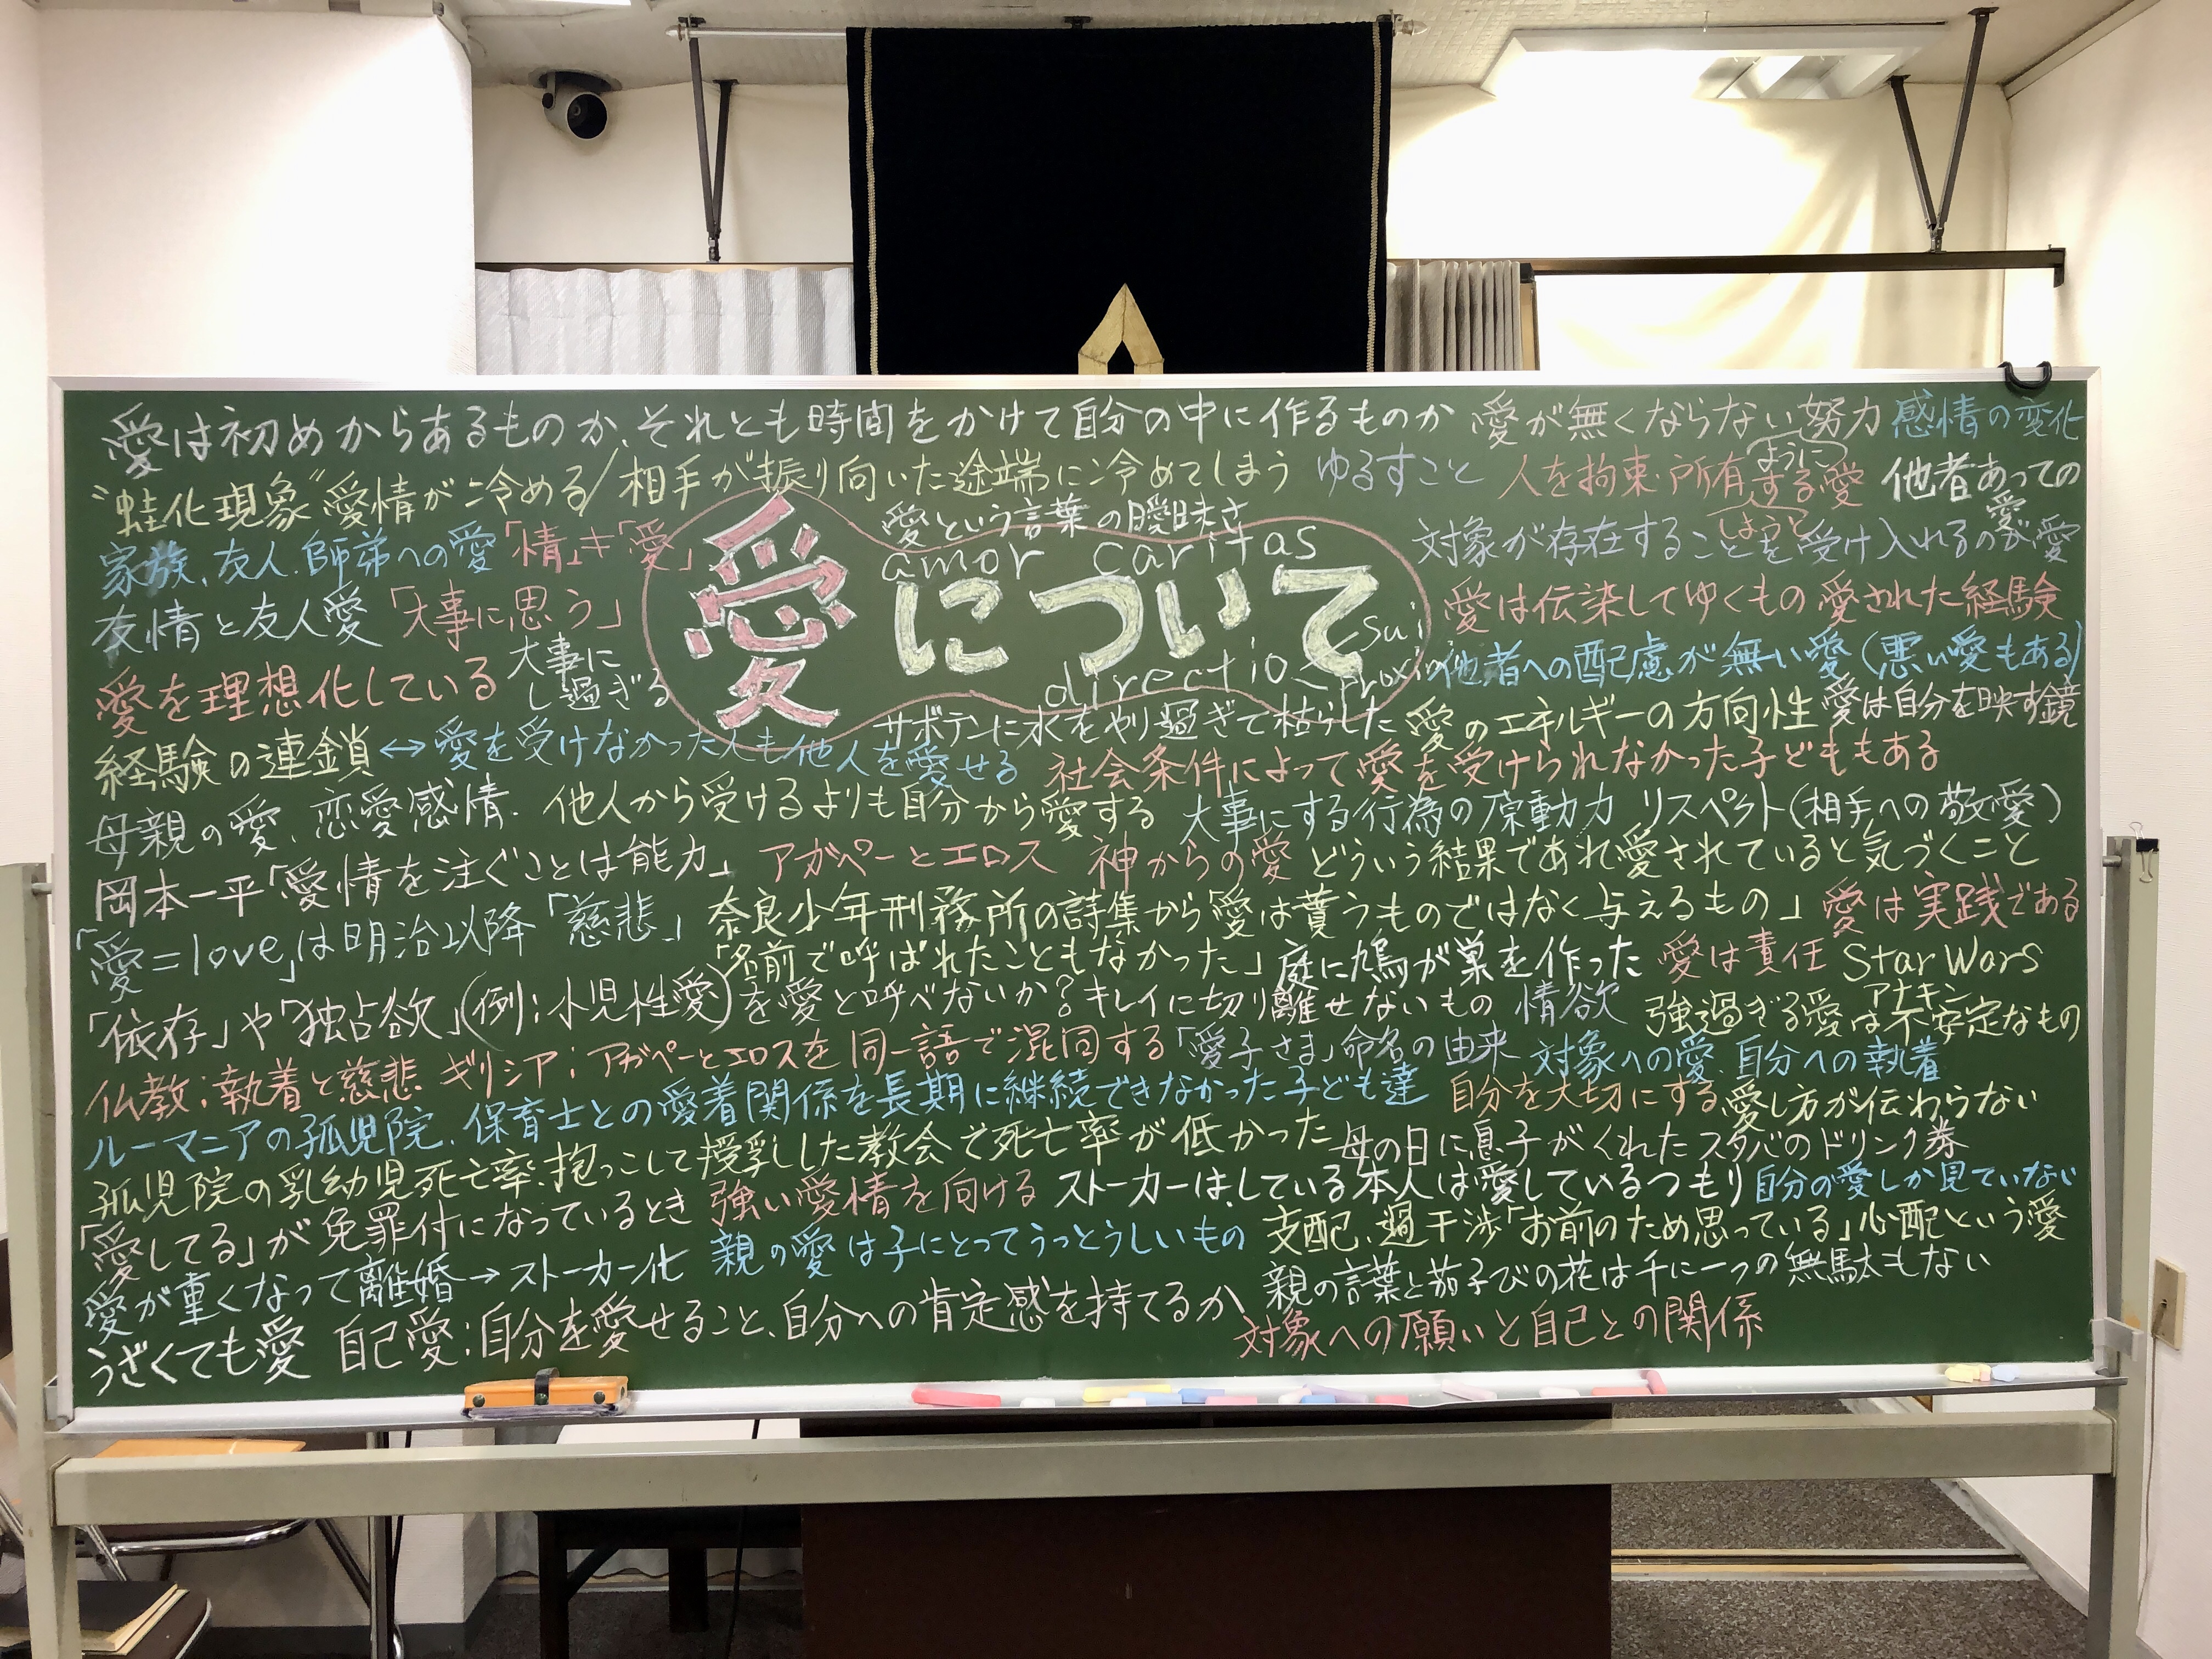 愛は初めからあるものか、それとも時間をかけて自分の中に作るものか 愛が無くならない努力 感情の変化
"蛙化現象" 愛情が冷める/相手が振り向いた途端に冷めてしまう ゆるすこと 人を拘束・所有する愛 他者あっての愛
ように
しようと
家族、友人、師弟への愛 「情」≠「愛」 愛という言葉の曖昧さ 対象が存在することを受け入れるのが愛
amor caritas
愛について
directio
sui
proxim
友情と友人愛 「大事に思う」 愛は伝染してゆくもの 愛された経験
愛を理想化している 大事にし過ぎる 他者への配慮が無い愛(悪い愛もある)
サボテンに水をやり過ぎて枯らした 愛のエネルギーの方向性 愛は自分を映す鏡
経験の連鎖↔愛を受けなかった人も他人を愛せる 社会条件によって愛を受けられなかった子どももある
母親の愛、恋愛感情. 他人から受けるよりも自分から愛する 大事にする行為の原動力 リスペクト(相手への敬愛)
岡本一平「愛情を注ぐことは能力」 アガペーとエロス 神からの愛 どういう結果であれ愛されていると気づくこと
「愛=love」は明治以降 「慈悲」 奈良少年刑務所の詩集から「愛は貰うものではなく与えるもの」 愛は実践である
「名前で呼ばれたこともなかった」 庭に鳩が巣を作った 愛は責任 Star Wars
「依存」や「独占欲」(例:小児性愛)を愛と呼べないか?キレイに切り離せないもの 情欲 強過ぎる愛は不安定なもの
アナキン
仏教:執着と慈悲 ギリシア:アガペーとエロスを同一語で混同する 「愛子さま」命名の由来 対象への愛、自分への執着
ルーマニアの孤児院、保育士との愛着関係を長期に継続できなかった子ども達 自分を大切にする 愛し方が伝わらない
孤児院の乳幼児死亡率、抱っこして授乳した教会で死亡率が低かった 母の日に息子がくれたスタバのドリンク券
「愛してる」が免罪付になっているとき 強い愛情を向ける ストーカーは、している本人は愛しているつもり 自分の愛しか見ていない
愛が重くなって離婚→ストーカー化 親の愛は子にとってうっとうしいもの 支配、過干渉「お前のため思っている」心配という愛
親の言葉と茄子びの花は千に一つの無駄もない
うざくても愛 自己愛:自分を愛せること、自分への肯定感を持てるか 対象への願いと自己との関係